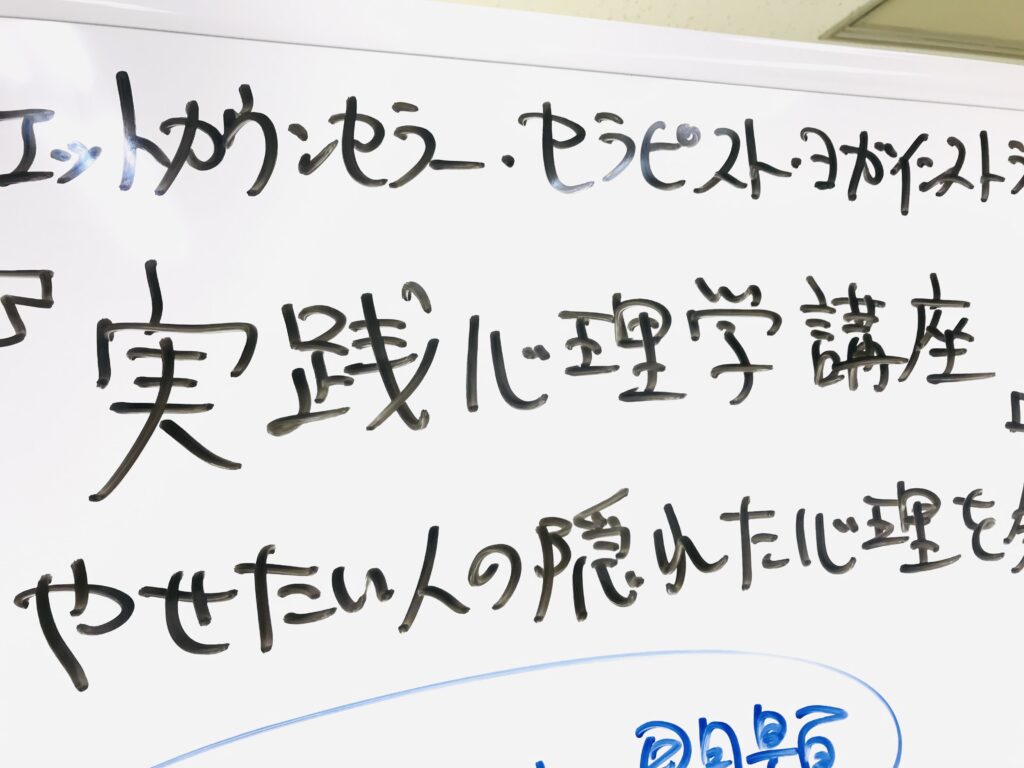 エットカウンセラー・セラピスト・ヨガインスト
『実践心理学講座
やせたい人の隠れた心理を
問題